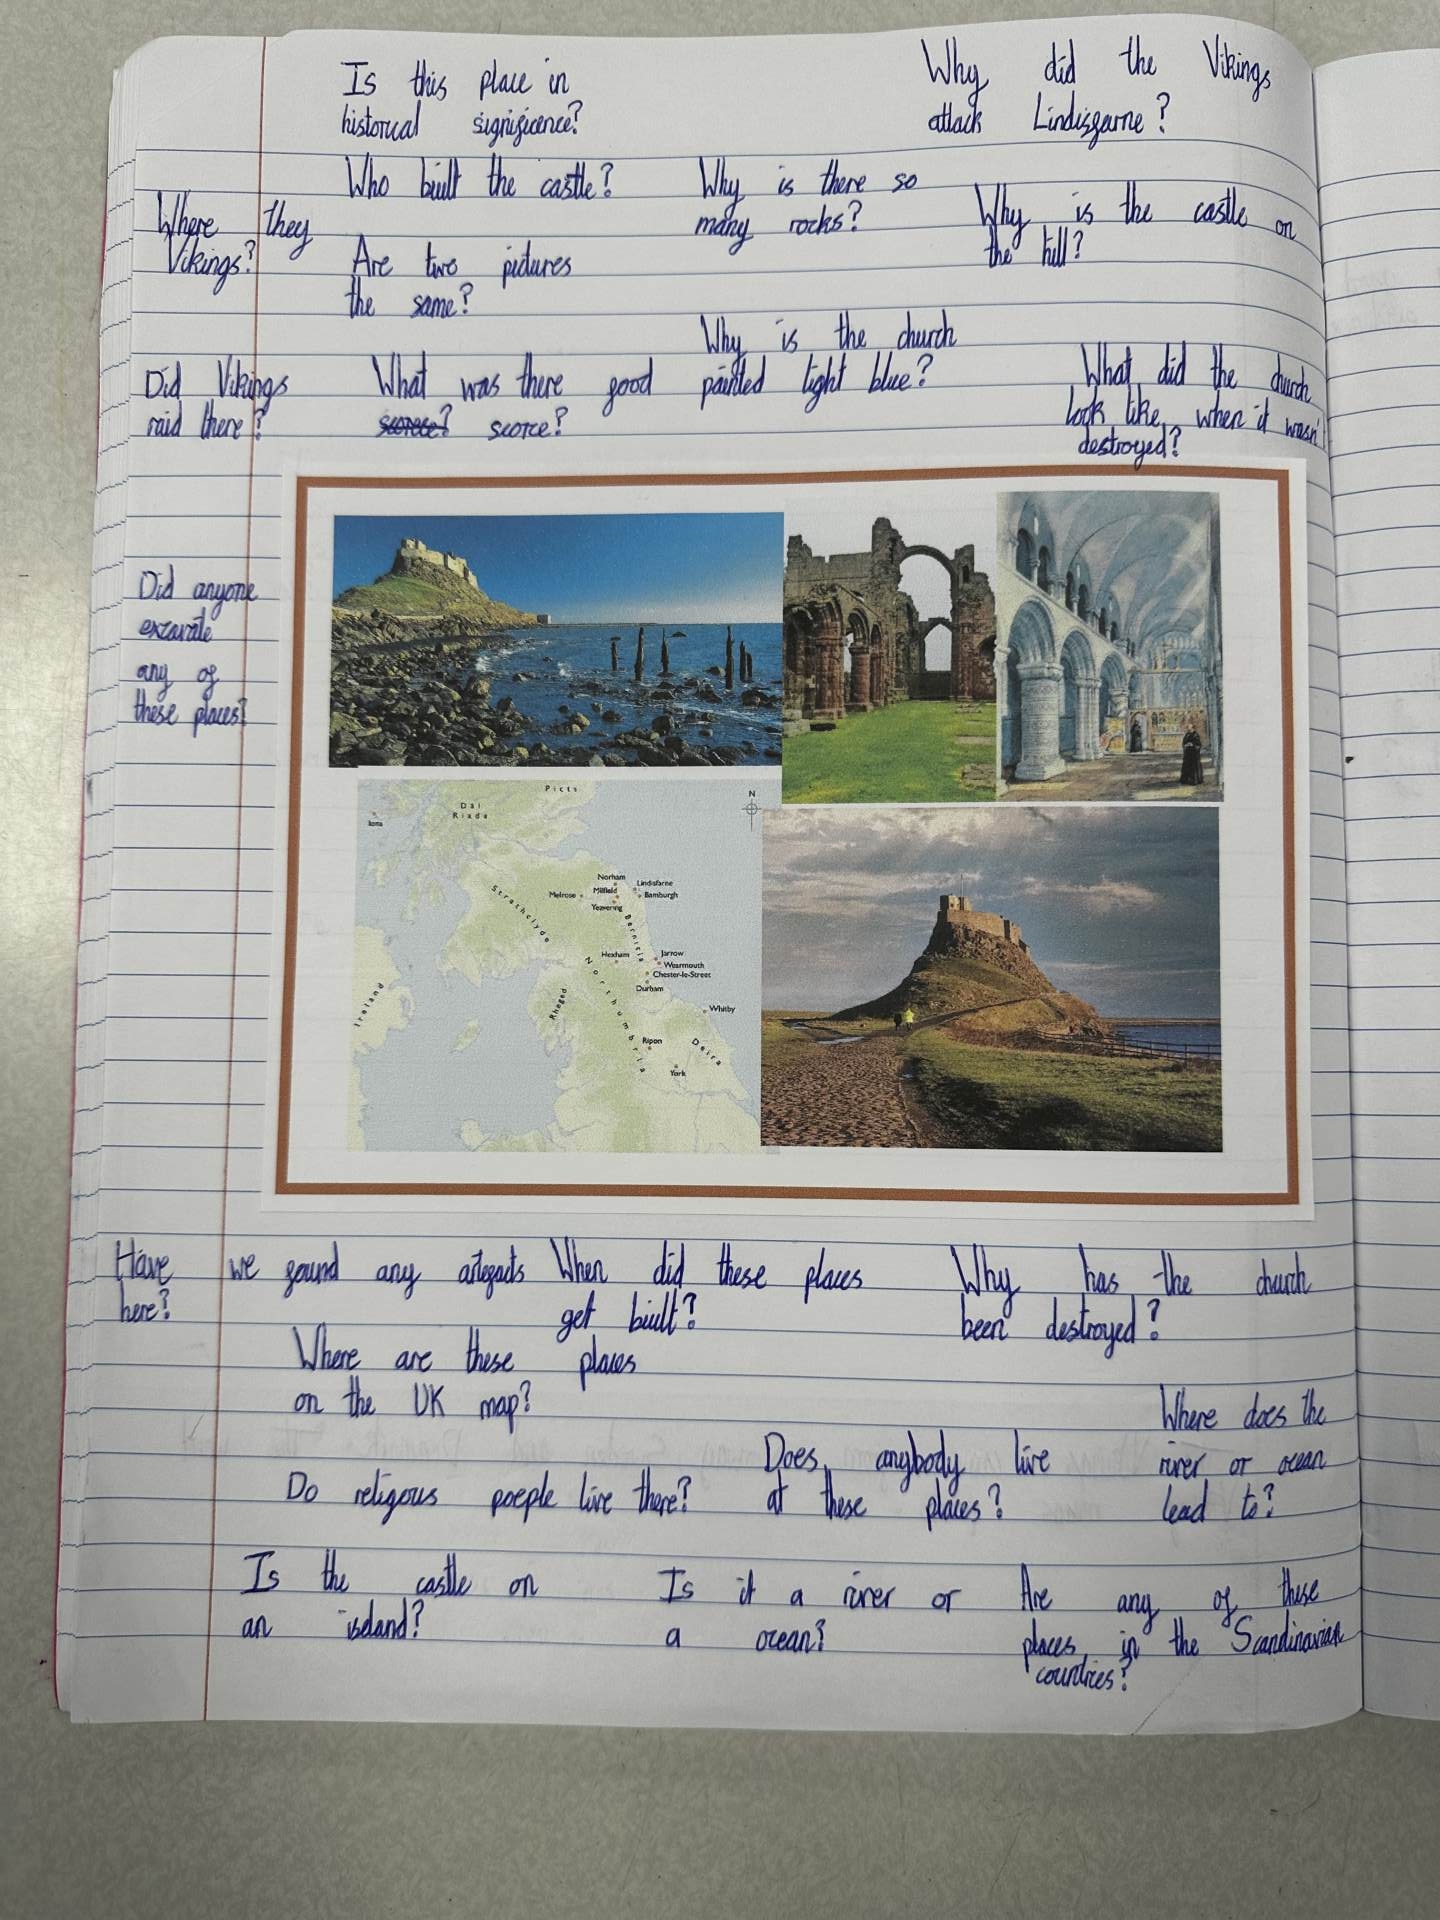 Is this place in
historical significence?
Why did the Vikings
attack Lindisfarne?
Who built the castle?
Why is there so
many rocks?
Why is the castle on
the hill?
Where they
Vikings?
Are two pictures
the same?
Why is the church
painted light blue?
Did Vikings
raid there?
What was there good
scorce?
What did the church
look like when it wasn't
destroyed?
Did anyone
excavate
any of
these places?
Picts
Dal
Riada
Iona
N
Norham
Lindisfarne
Melrose
Milfield
Bamburgh
Yeavering
Strathclyde
Bernicia
Hexham
Jarrow
Wearmouth
Chester-le-Street
Durham
Northumbria
Rheged
Ireland
Whitby
Ripon
Deira
York
Have we found any artefacts
here?
When did these places
get built?
Why has the church
been destroyed?
Where are these places
on the UK map?
Where does the
river or ocean
lead to?
Does anybody live
at these places?
Do religous poeple live there?
Is the castle on
an island?
Is it a river or
a ocean?
Are any of these
places in the Scandinavian
countries?